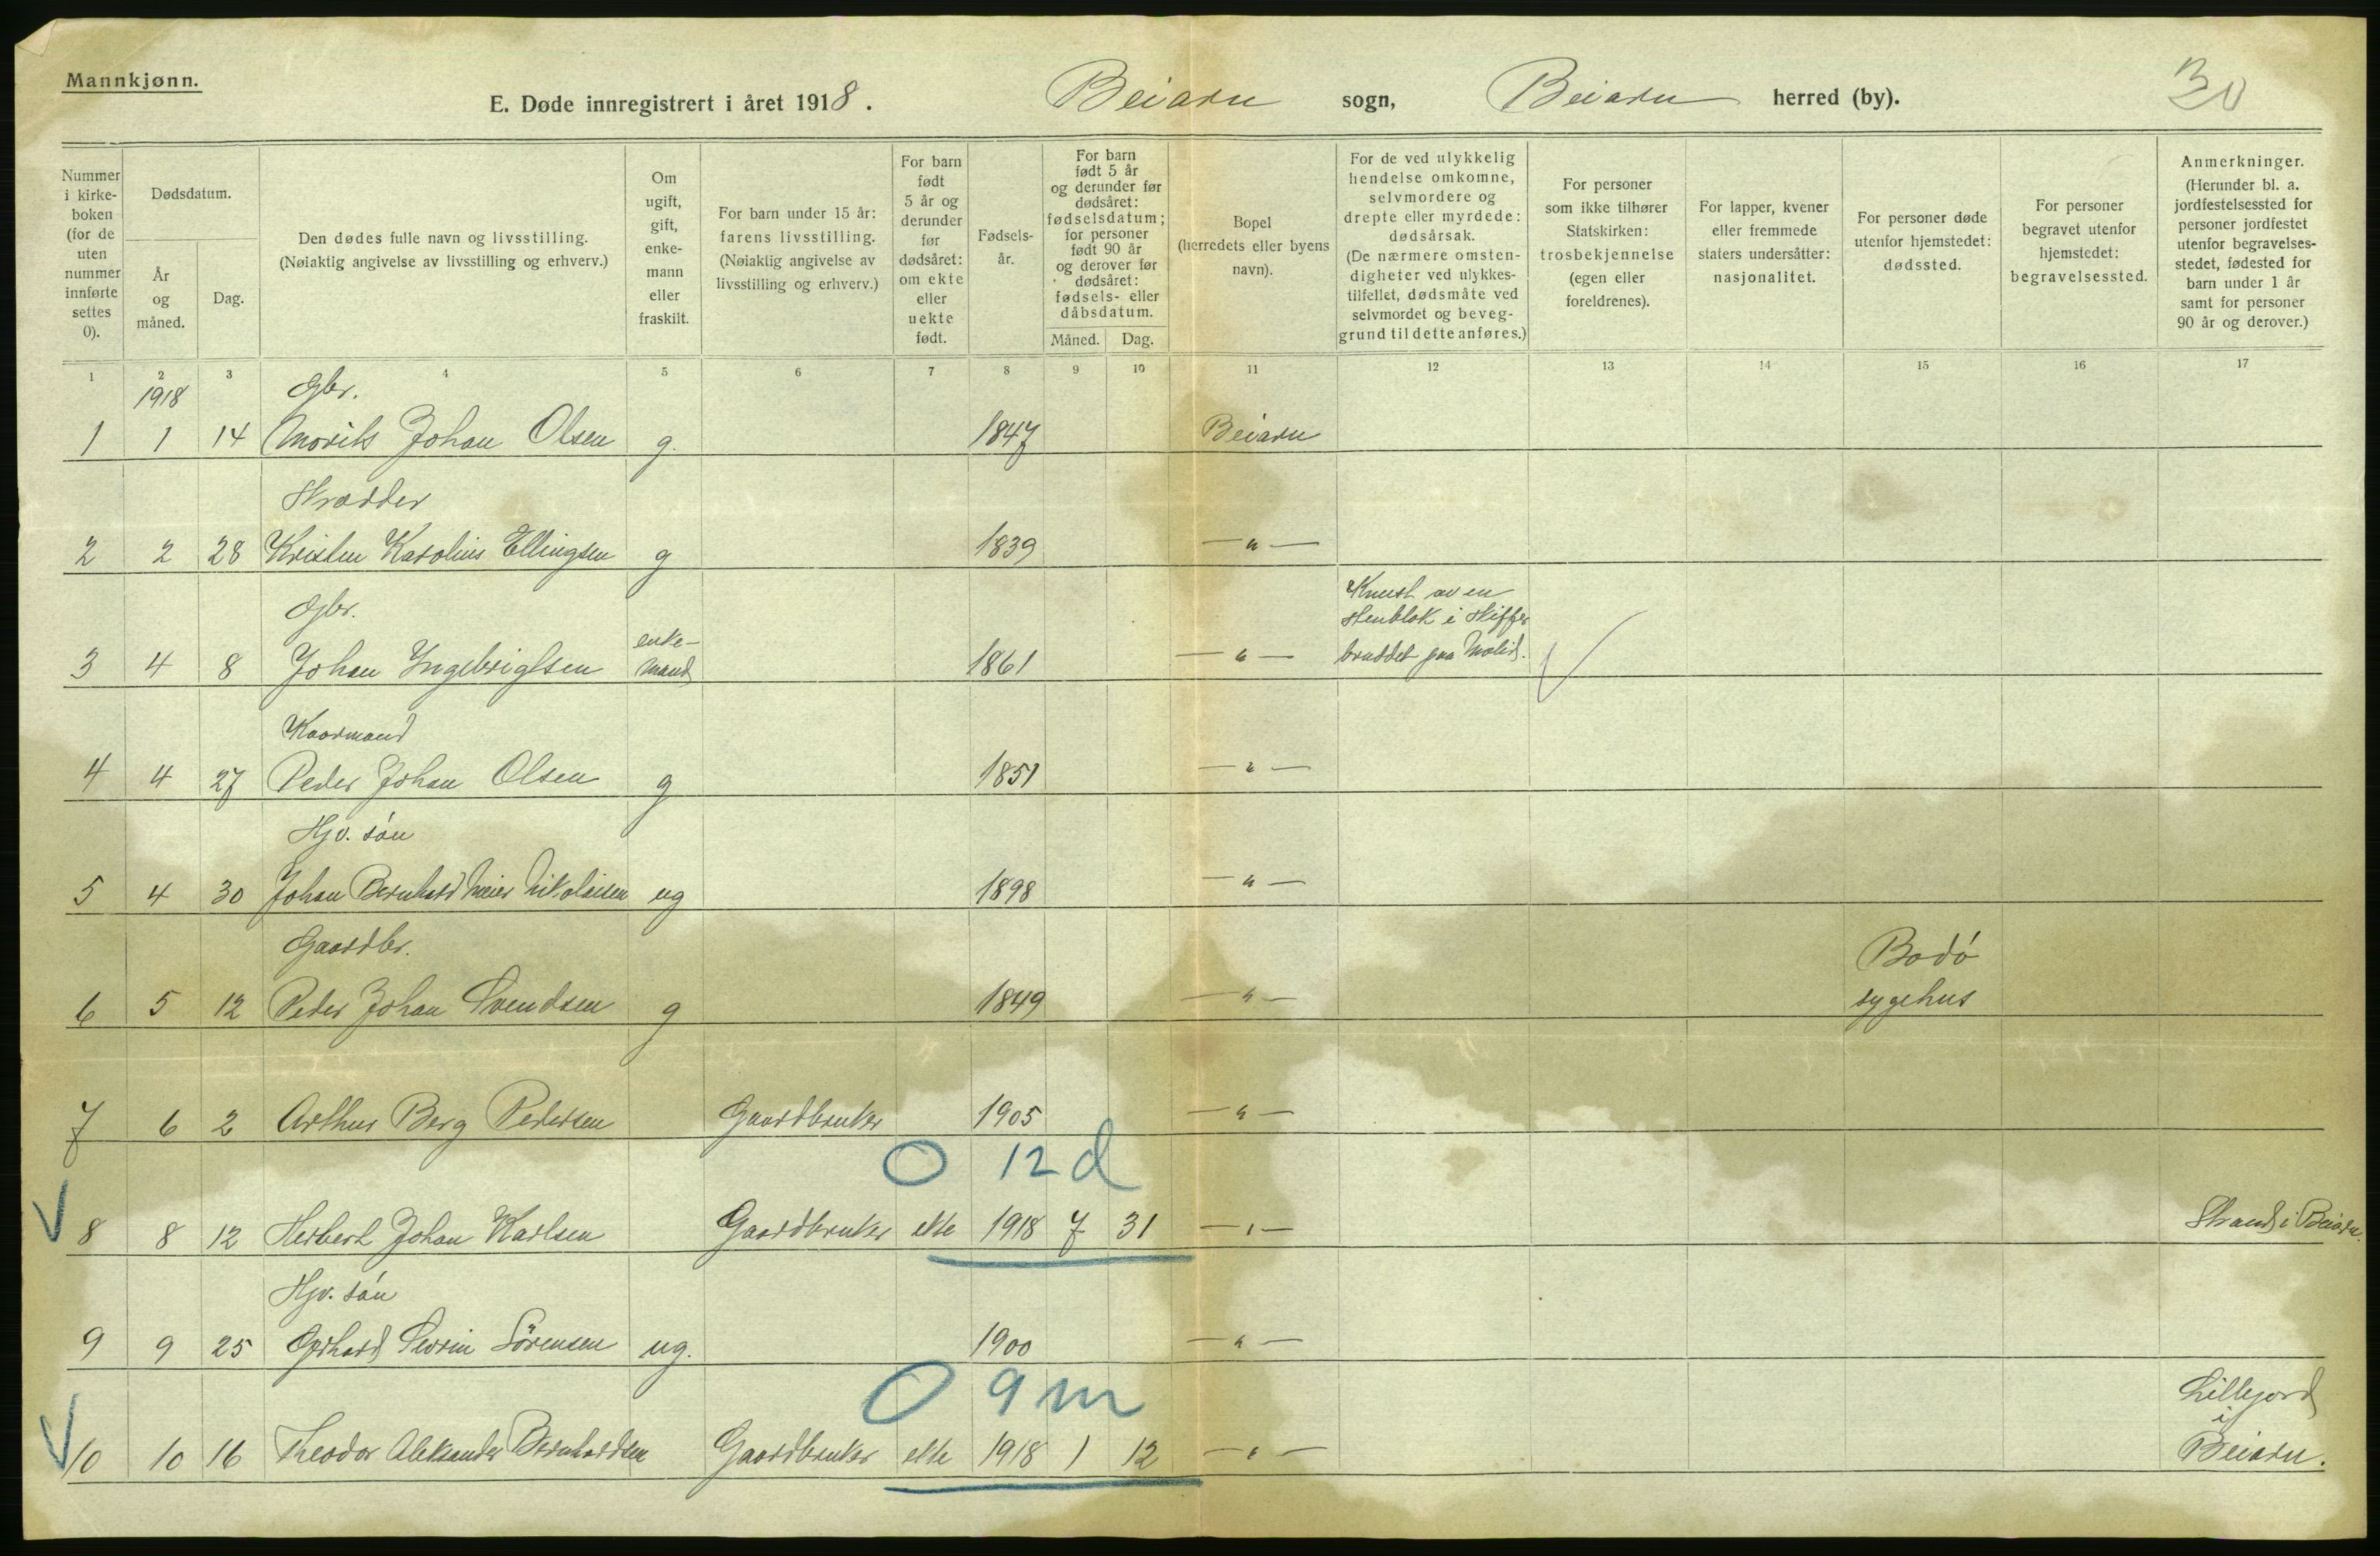 Mannkjønn.
E. Døde innregistrert i året 1918. Beiarn sogn, Beiarn herred (by). 30
Nummer i kirke-boken (for de uten nummer innførte settes 0).
Dødsdatum.
År og måned.
Dag.
Den dødes fulle navn og livsstilling.
(Nøiaktig angivelse av livsstilling og erhverv.)
Om ugift, gift, enke-mann eller fraskilt.
For barn under 15 år: farens livsstilling. (Nøiaktig angivelse av livsstilling og erhverv.)
For barn født 5 år og derunder før dødsåret: om ekte eller uekte født.
Fødsels-år.
For barn født 5 år og derunder før dødsåret: fødselsdatum; for personer født 90 år og derover før dødsåret: fødsels- eller dåbsdatum.
Måned. Dag.
Bopel (herredets eller byens navn).
For de ved ulykkelig hendelse omkomne, selvmordere og drepte eller myrdede: dødsårsak. (De nærmere omsten-digheter ved ulykkes-tilfellet, dødsmåte ved selvmordet og beveg-grund til dette anføres.)
For personer som ikke tilhører Statskirken: trosbekjennelse (egen eller foreldrenes).
For lapper, kvener eller fremmede staters undersåtter: nasjonalitet.
For personer døde utenfor hjemstedet: dødssted.
For personer begravet utenfor hjemstedet: begravelsessted.
Anmerkninger. (Herunder bl. a. jordfestelsessted for personer jordfestet utenfor begravelses-stedet, fødested for barn under 1 år samt for personer 90 år og derover.)
1 2 3 4 5 6 7 8 9 10 11 12 13 14 15 16 17
1918 Gbr.
1 1 14 Morits Johan Olsen g. 1847 Beiarn
Skrædder
2 2 28 Kristen Karolius Ellingsen g 1839 — " —
Gbr.
3 4 8 Johan Ingebrigtsen enke-mand 1861 — " — Knust av en stenblok i skiffer bruddet paa
Kaarmand
4 4 27 Peder Johan Olsen g 1851 — " —
Hjv. søn
5 4 30 Johan Bernhard Meier Nikolaisen ug 1898 — " —
Gaardbr.
6 5 12 Peder Johan Svendsen g 1849 — " — Bodø sygehus
7 6 2 Arthur Berg Pedersen Gaardbruker 1905 — " —
0 12 d
8 8 12 Herbert Johan Karlsen Gaardbruker ekte 1918 7 31 — " — Strand i Beiarn.
Hjv. søn
9 9 25 Gerhard Sevrin Sörensen ug. 1900 — " —
0 9 m
10 10 16 Theodor Aleksander Bernhardsen Gaardbruker ekte 1918 1 12 — " — Lillejord i Beiarn.